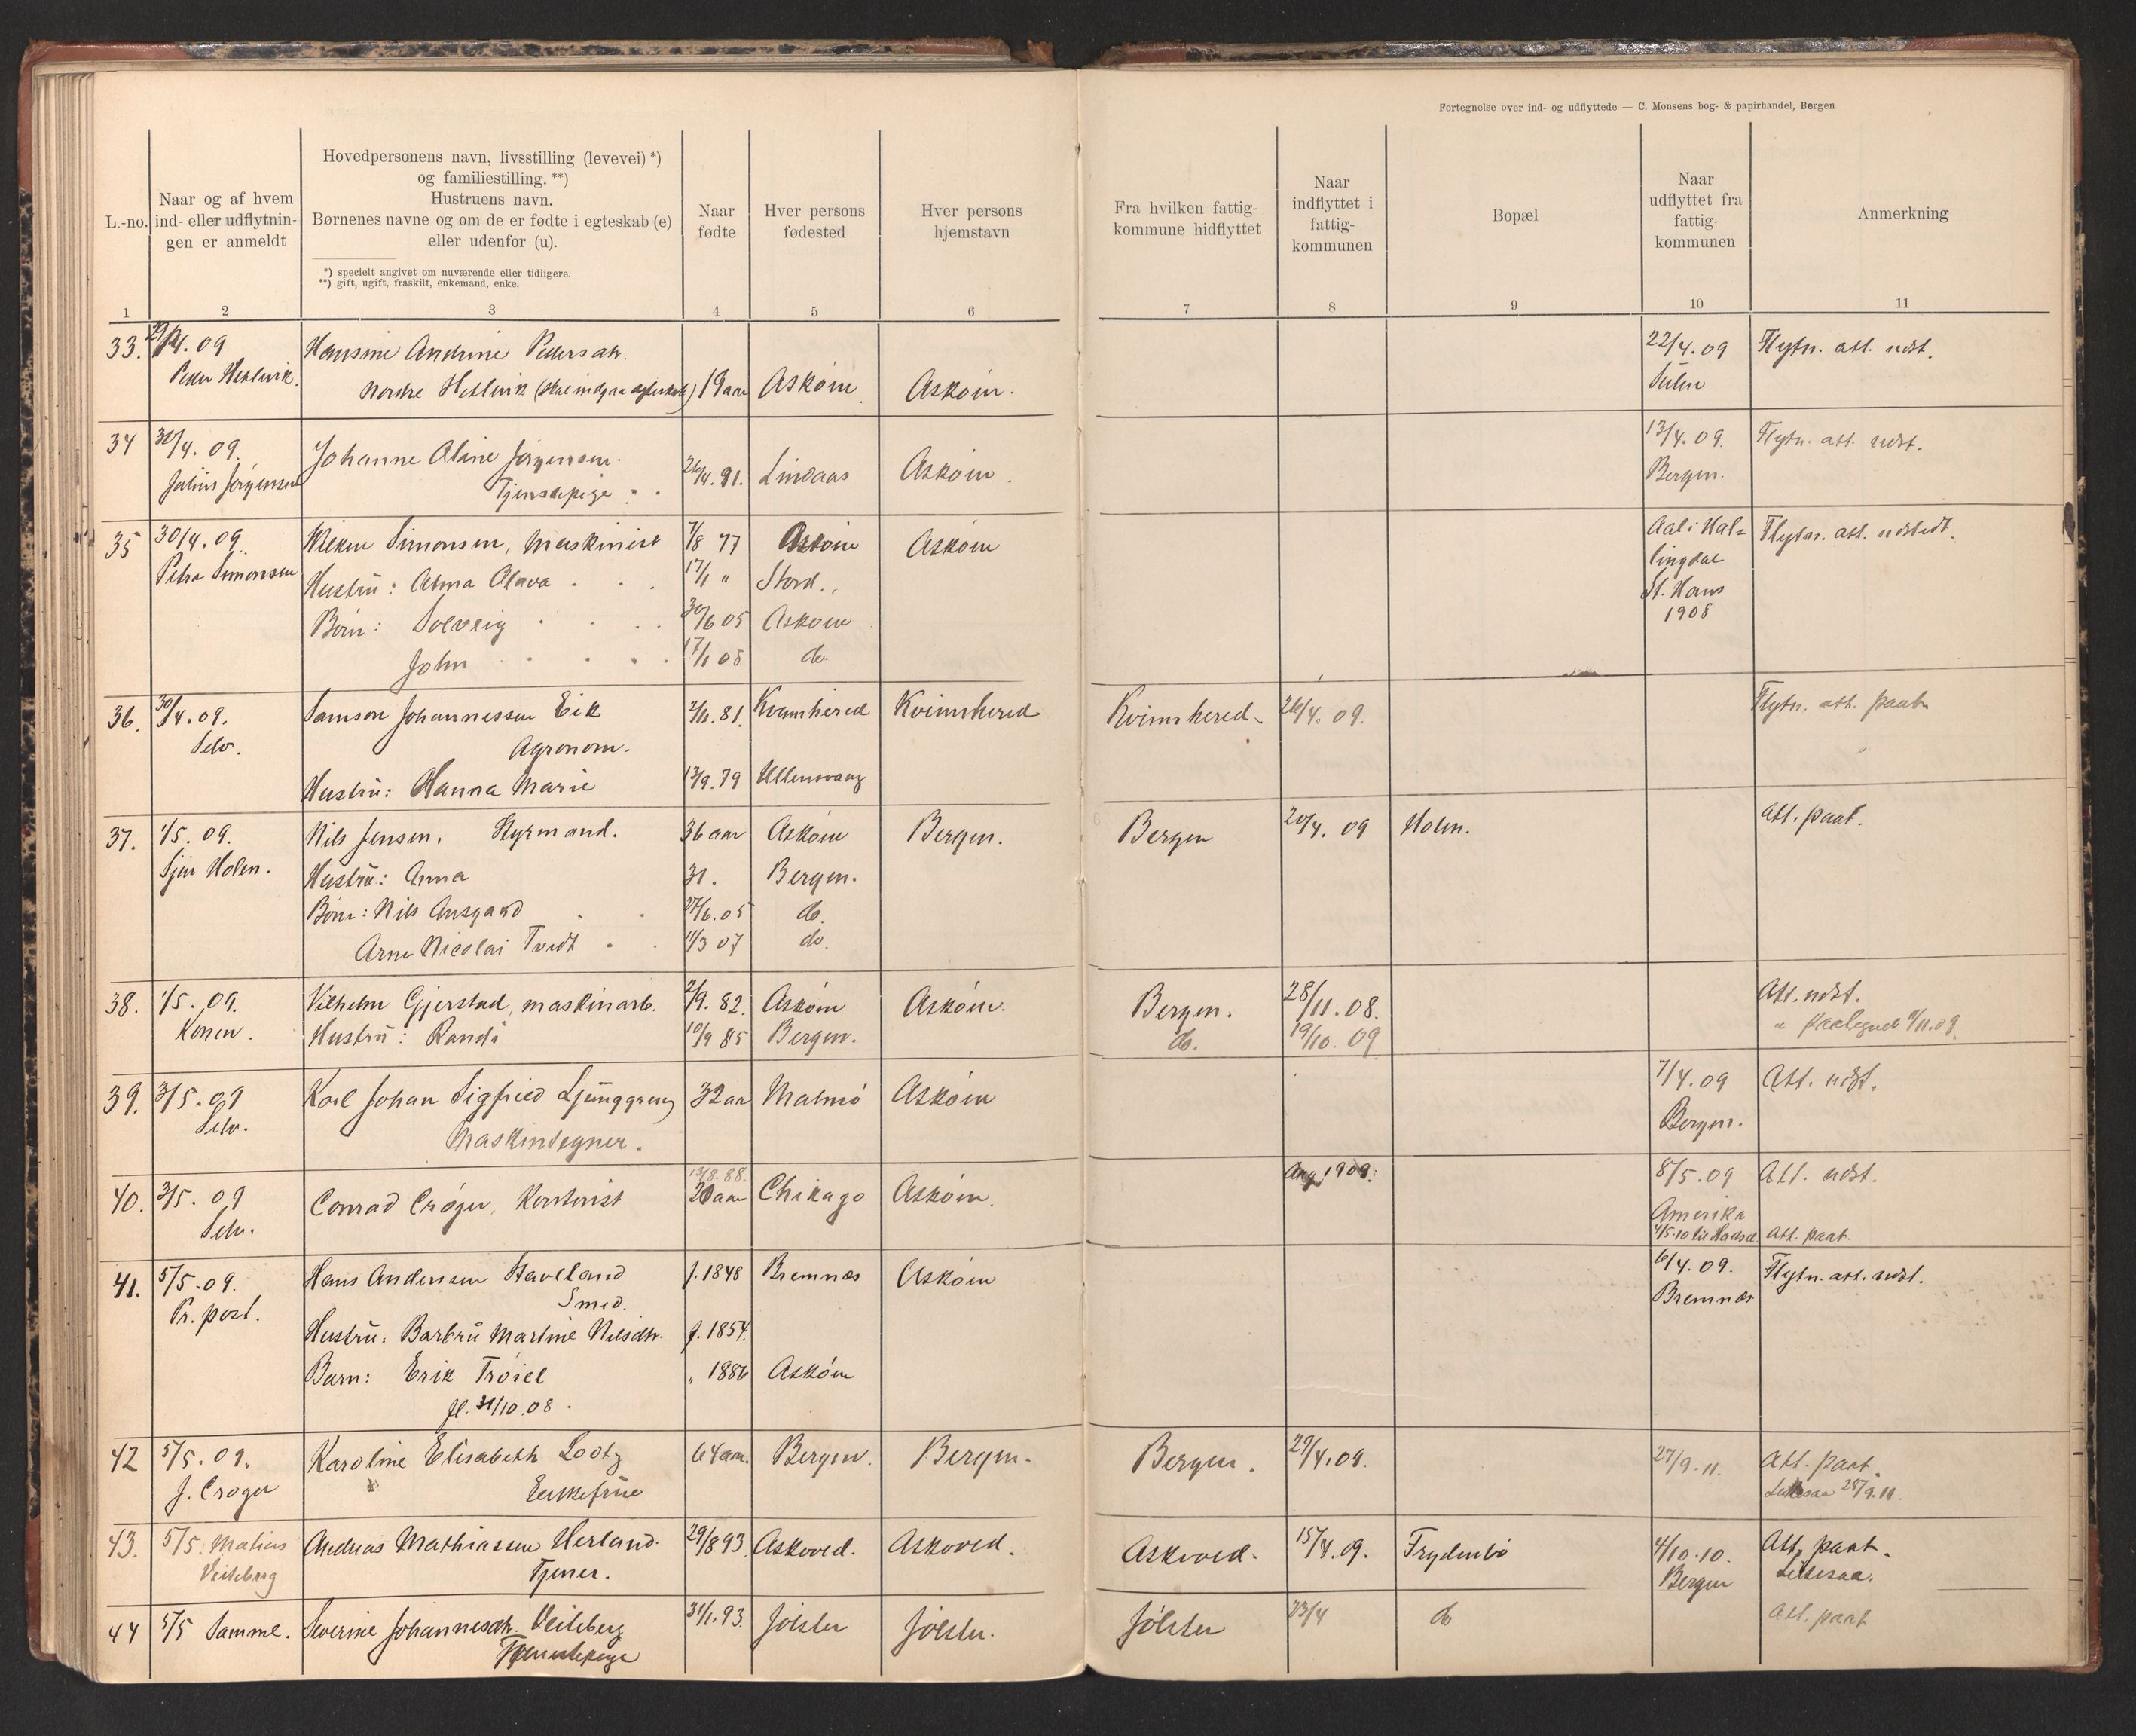 Fortegnelse over ind- og udflyttede — C. Monsens bog- & papirhandel, Bergen
L.-no.
Naar og af hvem
ind- eller udflytnin-
gen er anmeldt
Hovedpersonens navn, livsstilling (levevei) *)
og familiestilling. **)
Hustruens navn.
Børnenes navne og om de er fødte i egteskab (e)
eller udenfor (u).
*) specielt angivet om nuværende eller tidligere.
**) gift, ugift, fraskilt, enkemand, enke.
Naar
fødte
Hver persons
fødested
Hver persons
hjemstavn
Fra hvilken fattig-
kommune hidflyttet
Naar
indflyttet i
fattig-
kommunen
Bopæl
Naar
udflyttet fra
fattig-
kommunen
Anmerkning
1 2 3 4 5 6 7 8 9 10 11
33. /4. 09 Hansine Andrine Pedersdtr. 22/4. 09 Flytn. att. udst.
Peder Hetlevik. Nordre Hetlevik (skal indgaa egteskab) 19 aar Askøin Askøin.
34 30/4. 09. Johanne Oline Jørgensen. 13/4. 09. Flytn. att. udst.
Julius Jørgensen Tjenstepige 26/4. 91. Lindaas Askøin. Bergen.
35 30/4. 09. Simonsen, Maskinist 7/8 77 Askøin Askøin Aal i Hal= Flytn. att. udstedt.
Petra Simonsen Hustru: Alma Olava 17/1 " Stord. lingdal
St. Hans
Børn: Solveig 30/6 05 Askøin 1908
John 17/1 08 do.
36. 30/4. 09. Samson Johannessen Eik 2/11. 81. Kvamhered Kvinnhered Kvinnhered 26/4. 09. Flytn. att. paat.
Selv. Agronom.
Hustru: Hanna Marie 13/9. 79 Ullensvang
37. 1/5. 09. Nils Jensen. Styrmand. 36 aar Askøin Bergen. Bergen 20/4. 09 Holm. Att. paat.
Sjur Holm. Hustru: Anna 31. Bergen.
Børn: Nils Ansgard 27/6. 05 do.
Arne Nicolai Tvedt 11/3 07 do.
38. 1/5. 09. Vilhelm Gjerstad, maskinarb. 2/9. 82. Askøin Askøin. Bergen. 28/11. 08. Att. udst.
Konen. Hustru: Randi 10/9 85 Bergen. do. 19/10. 09 " paategnet 9/11.09.
39. 3/5. 09 Karl Johan Sigfried Ljunggreen 32 aar Malmø Askøin 7/4. 09 Att. udst.
Selv. Maskintegner. Bergen.
13/8. 88.
40. 3/5. 09 Conrad Crøger, Kontorist 20 aar Chikago Askøin. Aug 1909. 8/5. 09 Att. udst.
Selv. Amerika
4/5-10 til Att. paat.
41. 5/5. 09. Hans Andersen Haveland f. 1848 Bremnæs Askøin 6/4. 09. Flytn. att. udst.
Pr. post. Smed. Bremnæs
Hustru: Barbru Martine Nilsdtr. f. 1854.
Barn: Erik Trøiel " 1886 Askøin
fl. 31/10. 08.
42 5/5. 09. Karoline Elisabeth Lootz 64 aar. Bergen. Bergen. Bergen. 29/4. 09. 27/9. 11. Att. paat.
J. Crøger Enkefrue 25/9. 11.
43. 5/5. Matias Andreas Mathiassen Herland. 29/8 93. Askvoed. Askvoed. Askvoed. 15/4. 09. Frydenbø 4/10. 10. Att. paat.
Veiteberg Tjener. Bergen
44 5/5 Samme. Severine Johannesdtr. Veiteberg 31/1. 93. Jølster Jølster. Jølster 23/4 do Att. paat
Tjenestepige